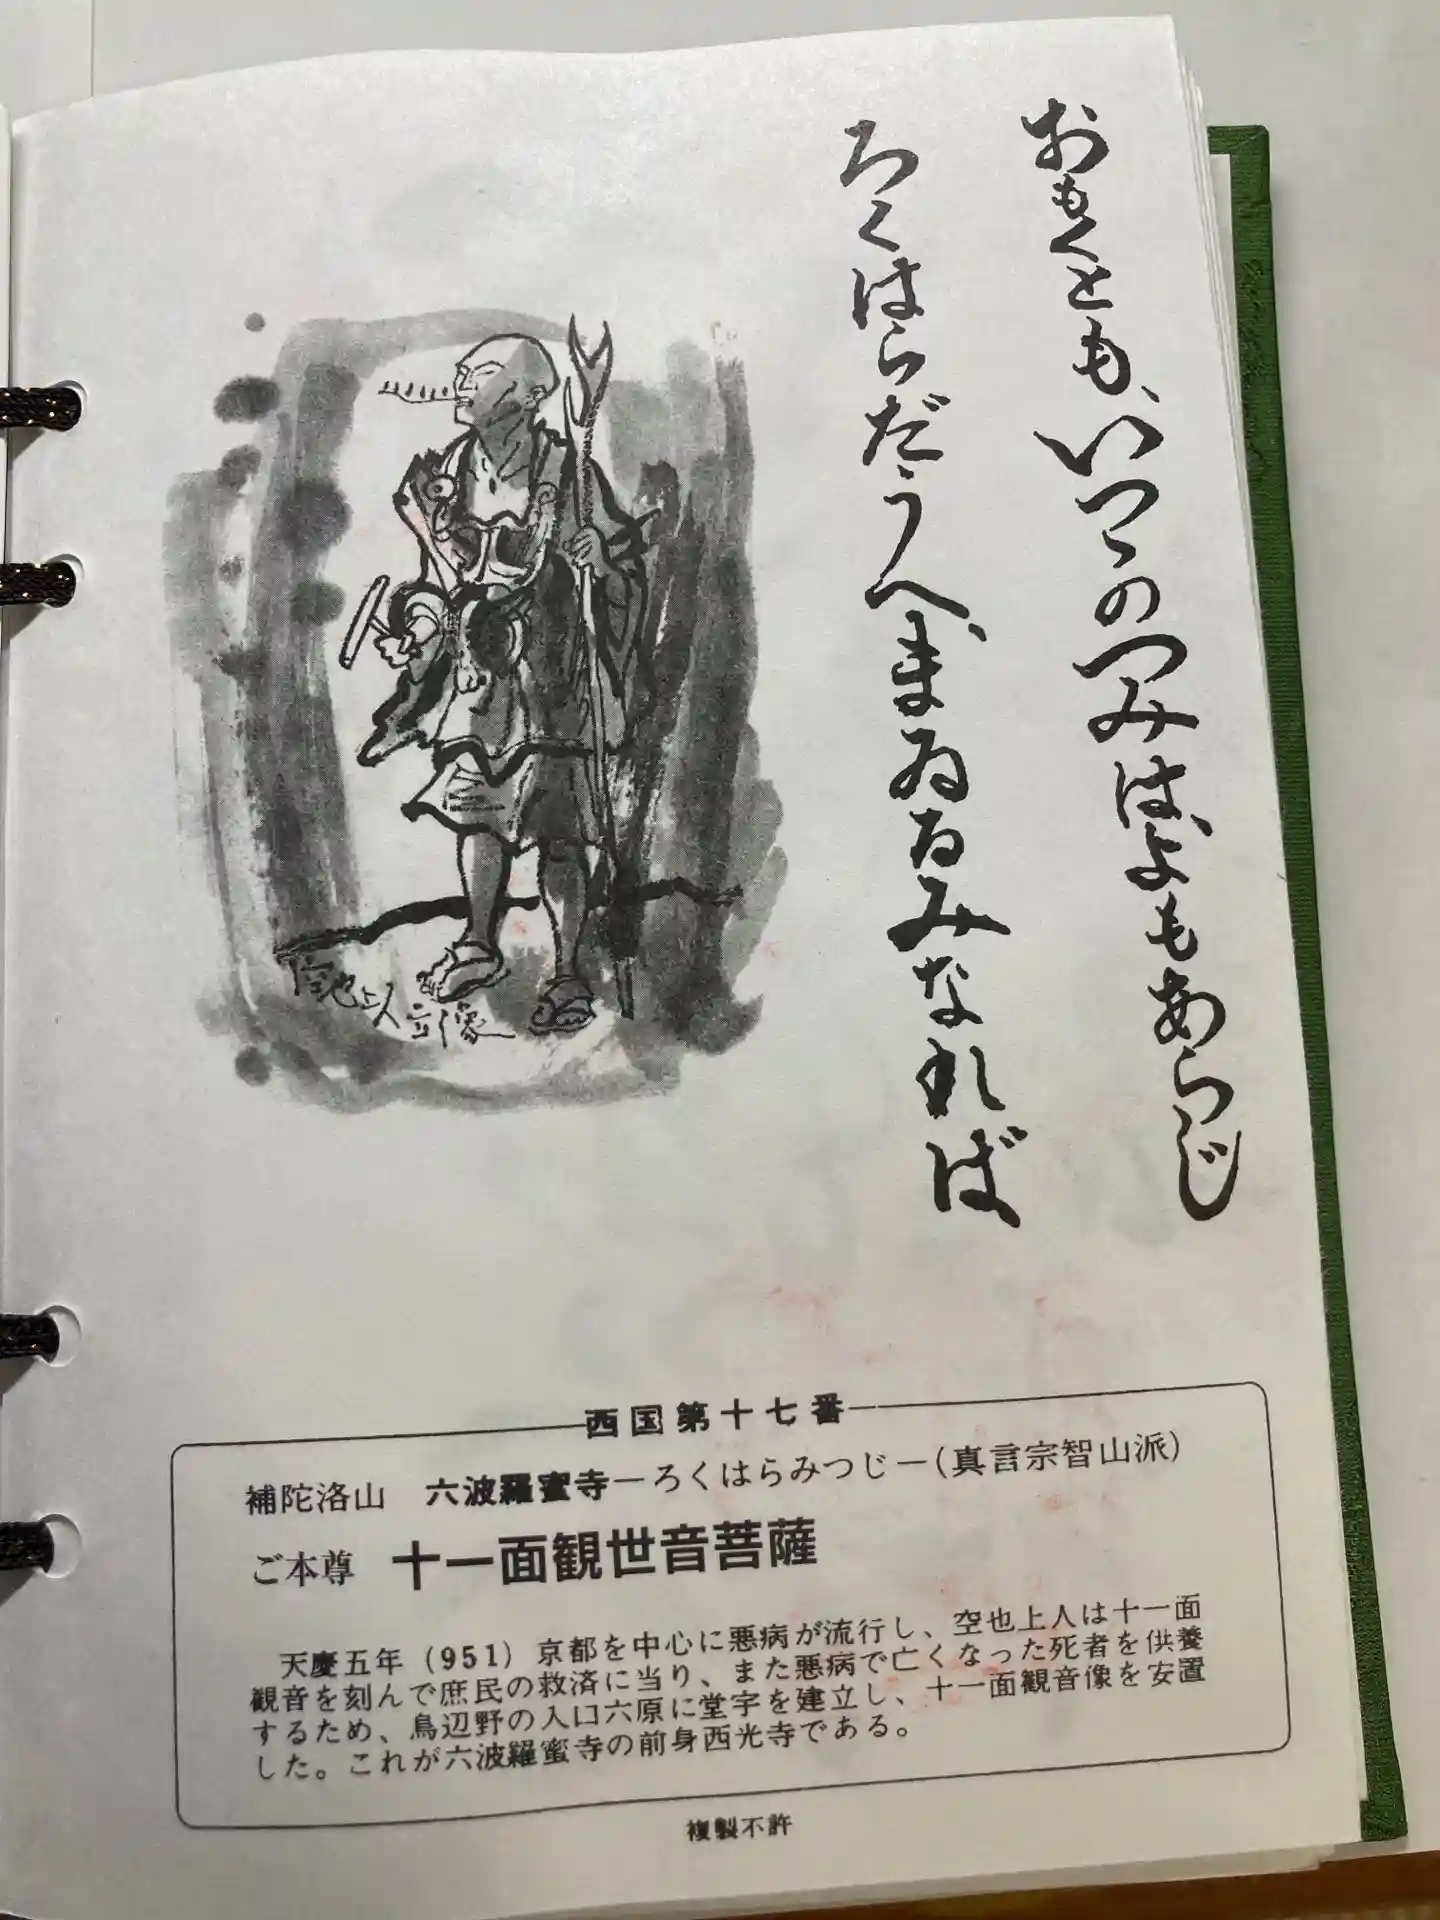 おもくとも、いつゝのつみは、よもあらじ
ろくはらだうへ、まゐるみなれば
空也上人
立像
西国第十七番
補陀洛山　六波羅蜜寺―ろくはらみつじ―(真言宗智山派)
ご本尊　十一面観世音菩薩
天慶五年（951）京都を中心に悪病が流行し、空也上人は十一面
観音を刻んで庶民の救済に当り、また悪病で亡くなった死者を供養
するため、鳥辺野の入口六原に堂宇を建立し、十一面観音像を安置
した。これが六波羅蜜寺の前身西光寺である。
複製不許